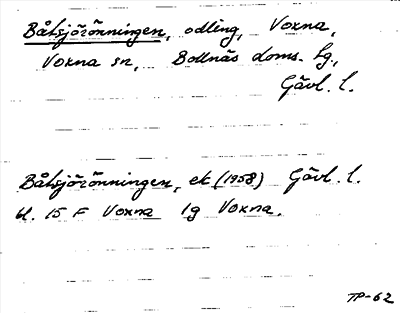 Båtsjörönningen, odling, Voxna,
Voxna sn, Bollnäs doms. tg.,
Gävl. l.
Båtsjörönningen, ek (1958) Gävl. l.
bl. 15 F Voxna lg Voxna.
TP-62